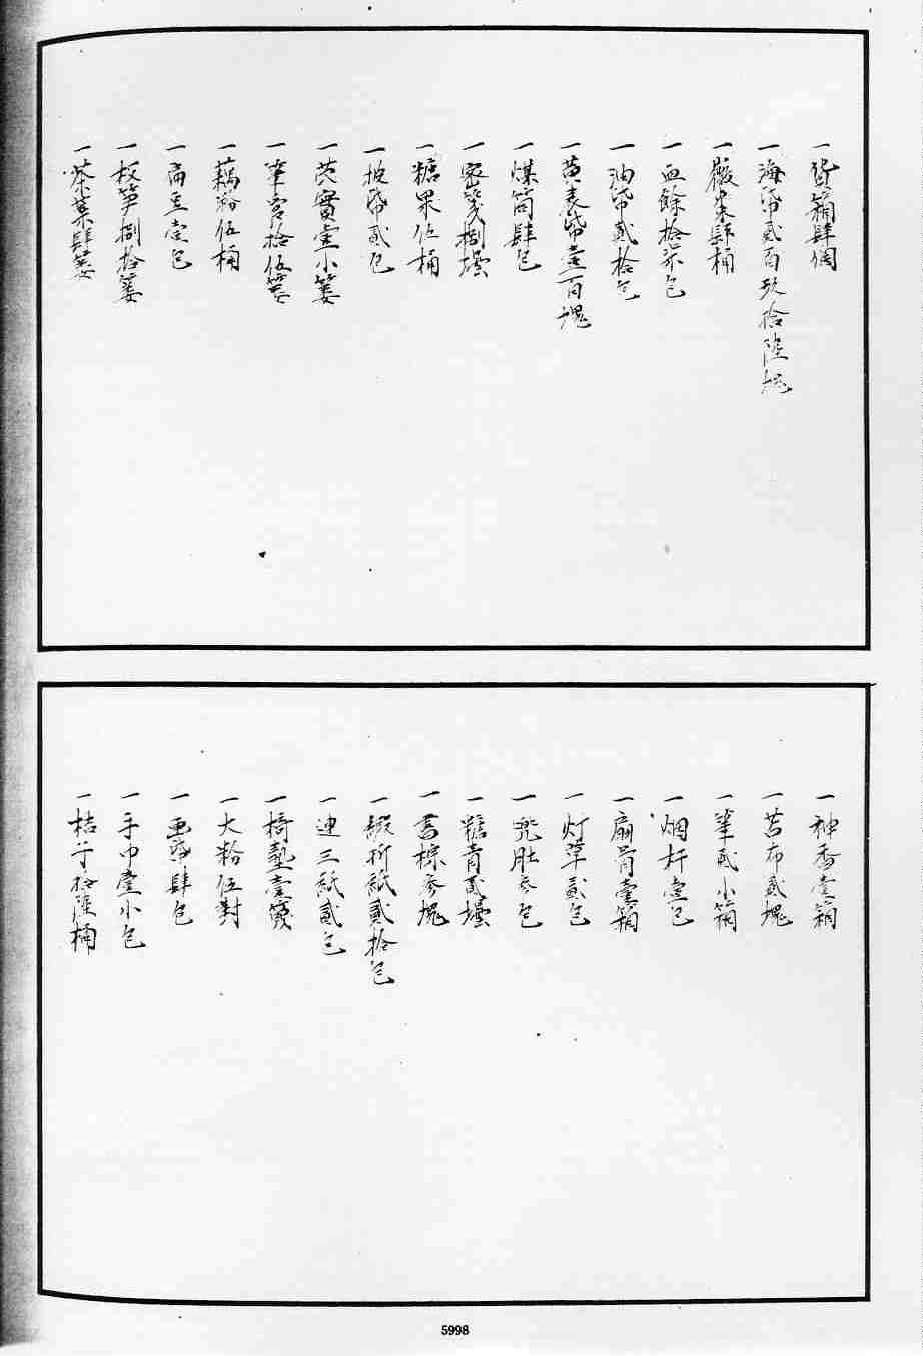 一皮箱肆個
一海帋貳百玖拾陸坛
一醎菜肆桶
一血餘拾六包
一油帋貳拾包
一黄表帋壹百塊
一煤筒肆包
一密箋捌壜
一糖果伍桶
一披帋貳包
一茨實壹小簍
一筆管拾伍簍
一藕粉伍桶
一扁豆壹包
一枝笋捌拾簍
一茶葉肆簍
一神香壹箱
一苔布貳塊
一筆貳小箱
一烟杆壹包
一扇骨壹箱
一灯草貳包
一兜肚叁包
一糖青貳壜
一書棕叁塊
一緞折紙貳拾包
一連三紙貳包
一椅墊壹簍
一大粉伍對
一画帋肆包
一手巾壹小包
一桔子拾陸桶
5998